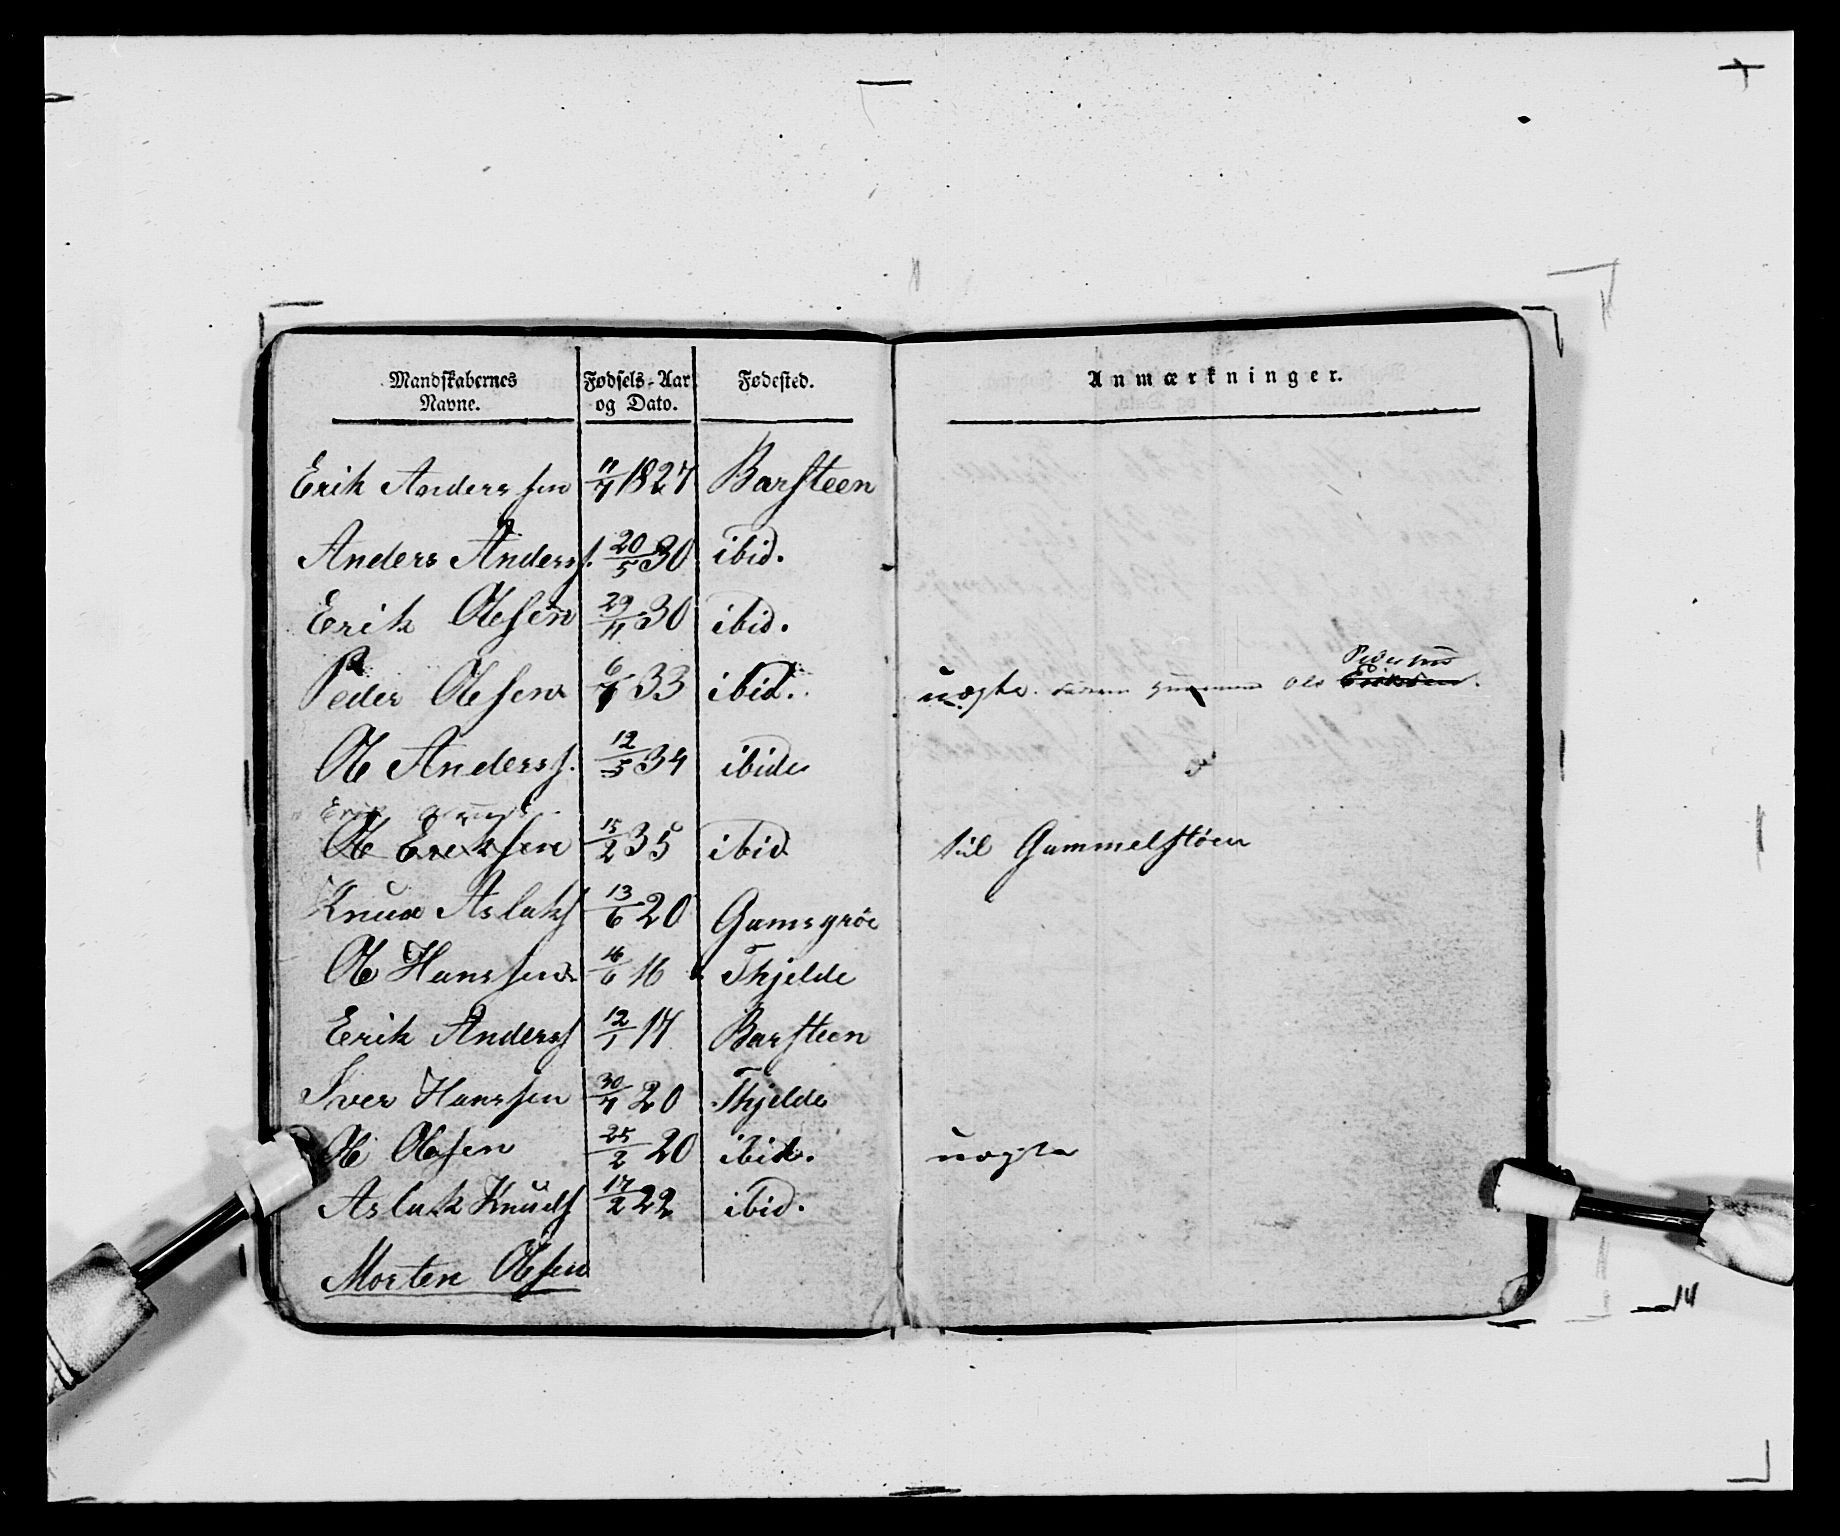 Mandskabernes Navne. Fødsels-Aar og Dato. Fødested. Anmærkninger.
Erik Anderssen 11/7 1827 Barsteen
Anders Anderss. 20/5 30 ibid.
Erik Olesen 29/11 30 ibid.
Pedersens
Peder Olesen 6/7 33 ibid. uægte Ole Eriksen.
Ole Anderss. 12/5 34 ibid.
Erik
Ole Eriksen 15/2 35 ibid til Gammelstöen
Knud Aslaks 13/6 20 Gamsgröe
Ole Hanssen 16/6 16 Thjelde
Erik Anderss 12/1 17 Barsteen
Iver Hanssen 30/7 20 Thjelde
Ole Olesen 25/2 20 ibid. uægte
Aslak Knuds 17/2 22 ibid.
Morten Olesen
14